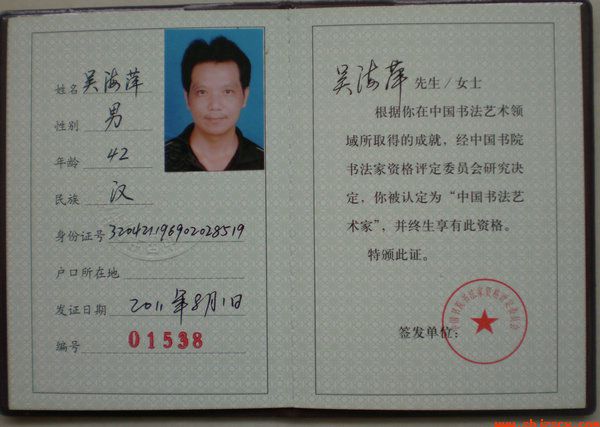 姓名 吴海萍
性别 男
年龄 42
民族 汉
身份证号 320421196902028519
户口所在地
发证日期 2011年8月1日
编号 01538
吴海萍 先生/女士
根据你在中国书法艺术领
域所取得的成就，经中国书院
书法家资格评定委员会研究决
定，你被认定为“中国书法艺
术家”，并终生享有此资格。
特颁此证。
签发单位：
中国书院书法家资格评定委员会